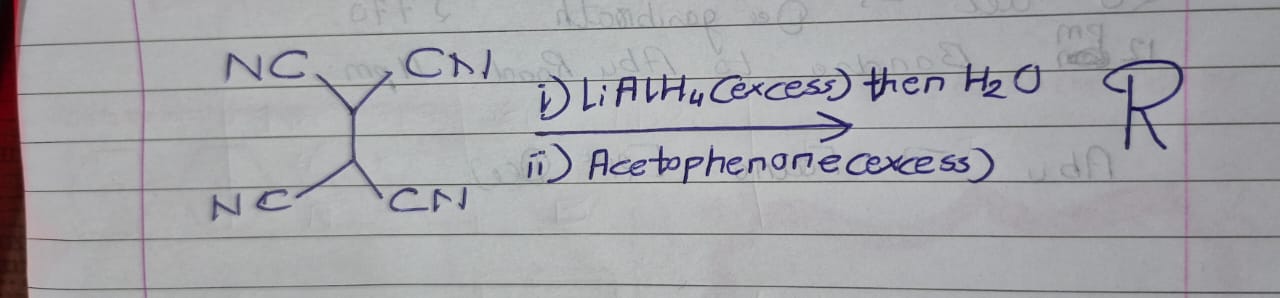 NC CN
i) LiAlH4 (excess) then H2O R
ii) Acetophenone (excess)
NC CN